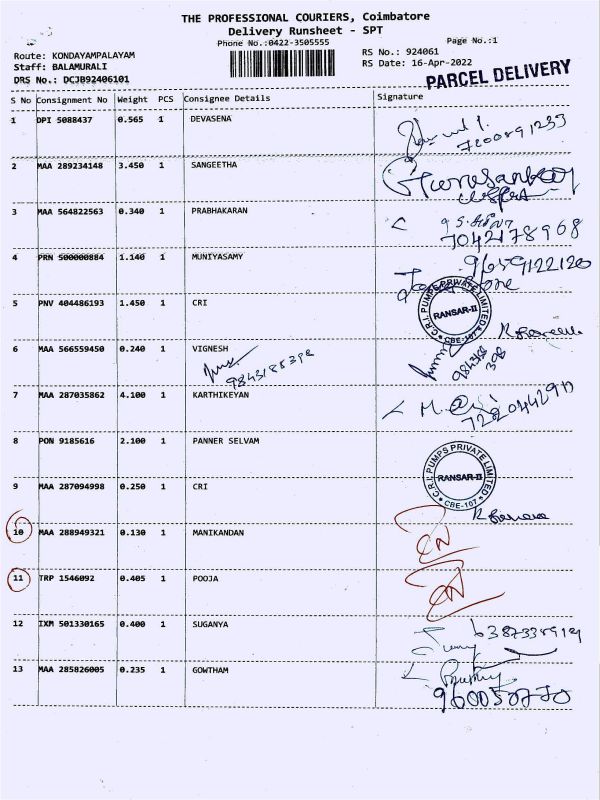 THE PROFESSIONAL COURIERS, Coimbatore
Delivery Runsheet - SPT
Phone No.:0422-3505555
Page No.:1
Route: KONDAYAMPALAYAM
Staff: BALAMURALI
DRS No.: DCJB92406101
RS No.: 924061
RS Date: 16-Apr-2022
PARCEL DELIVERY
S No Consignment No Weight PCS Consignee Details Signature
1 DPI 5088437 0.565 1 DEVASENA
7200891233
2 MAA 289234148 3.450 1 SANGEETHA
3 MAA 564822563 0.340 1 PRABHAKARAN
7042178968
4 PRN 500000884 1.140 1 MUNIYASAMY
9659122120
5 PNV 404486193 1.450 1 CRI
C.R.I. PUMPS PRIVATE LIMITED
RANSAR-II
CBE-107
6 MAA 566559450 0.240 1 VIGNESH
9843185398
7 MAA 287035862 4.100 1 KARTHIKEYAN
8 PON 9185616 2.100 1 PANNER SELVAM
C.R.I. PUMPS PRIVATE LIMITED
RANSAR-II
CBE-107
9 MAA 287094998 0.250 1 CRI
10 MAA 288949321 0.130 1 MANIKANDAN
11 TRP 1546092 0.405 1 POOJA
12 IXM 501330165 0.400 1 SUGANYA
13 MAA 285826005 0.235 1 GOWTHAM